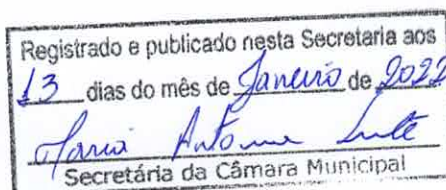 Registrado e publicado nesta Secretaria aos
13 dias do mês de Janeiro de 2022
Maria
Secretária da Câmara Municipal